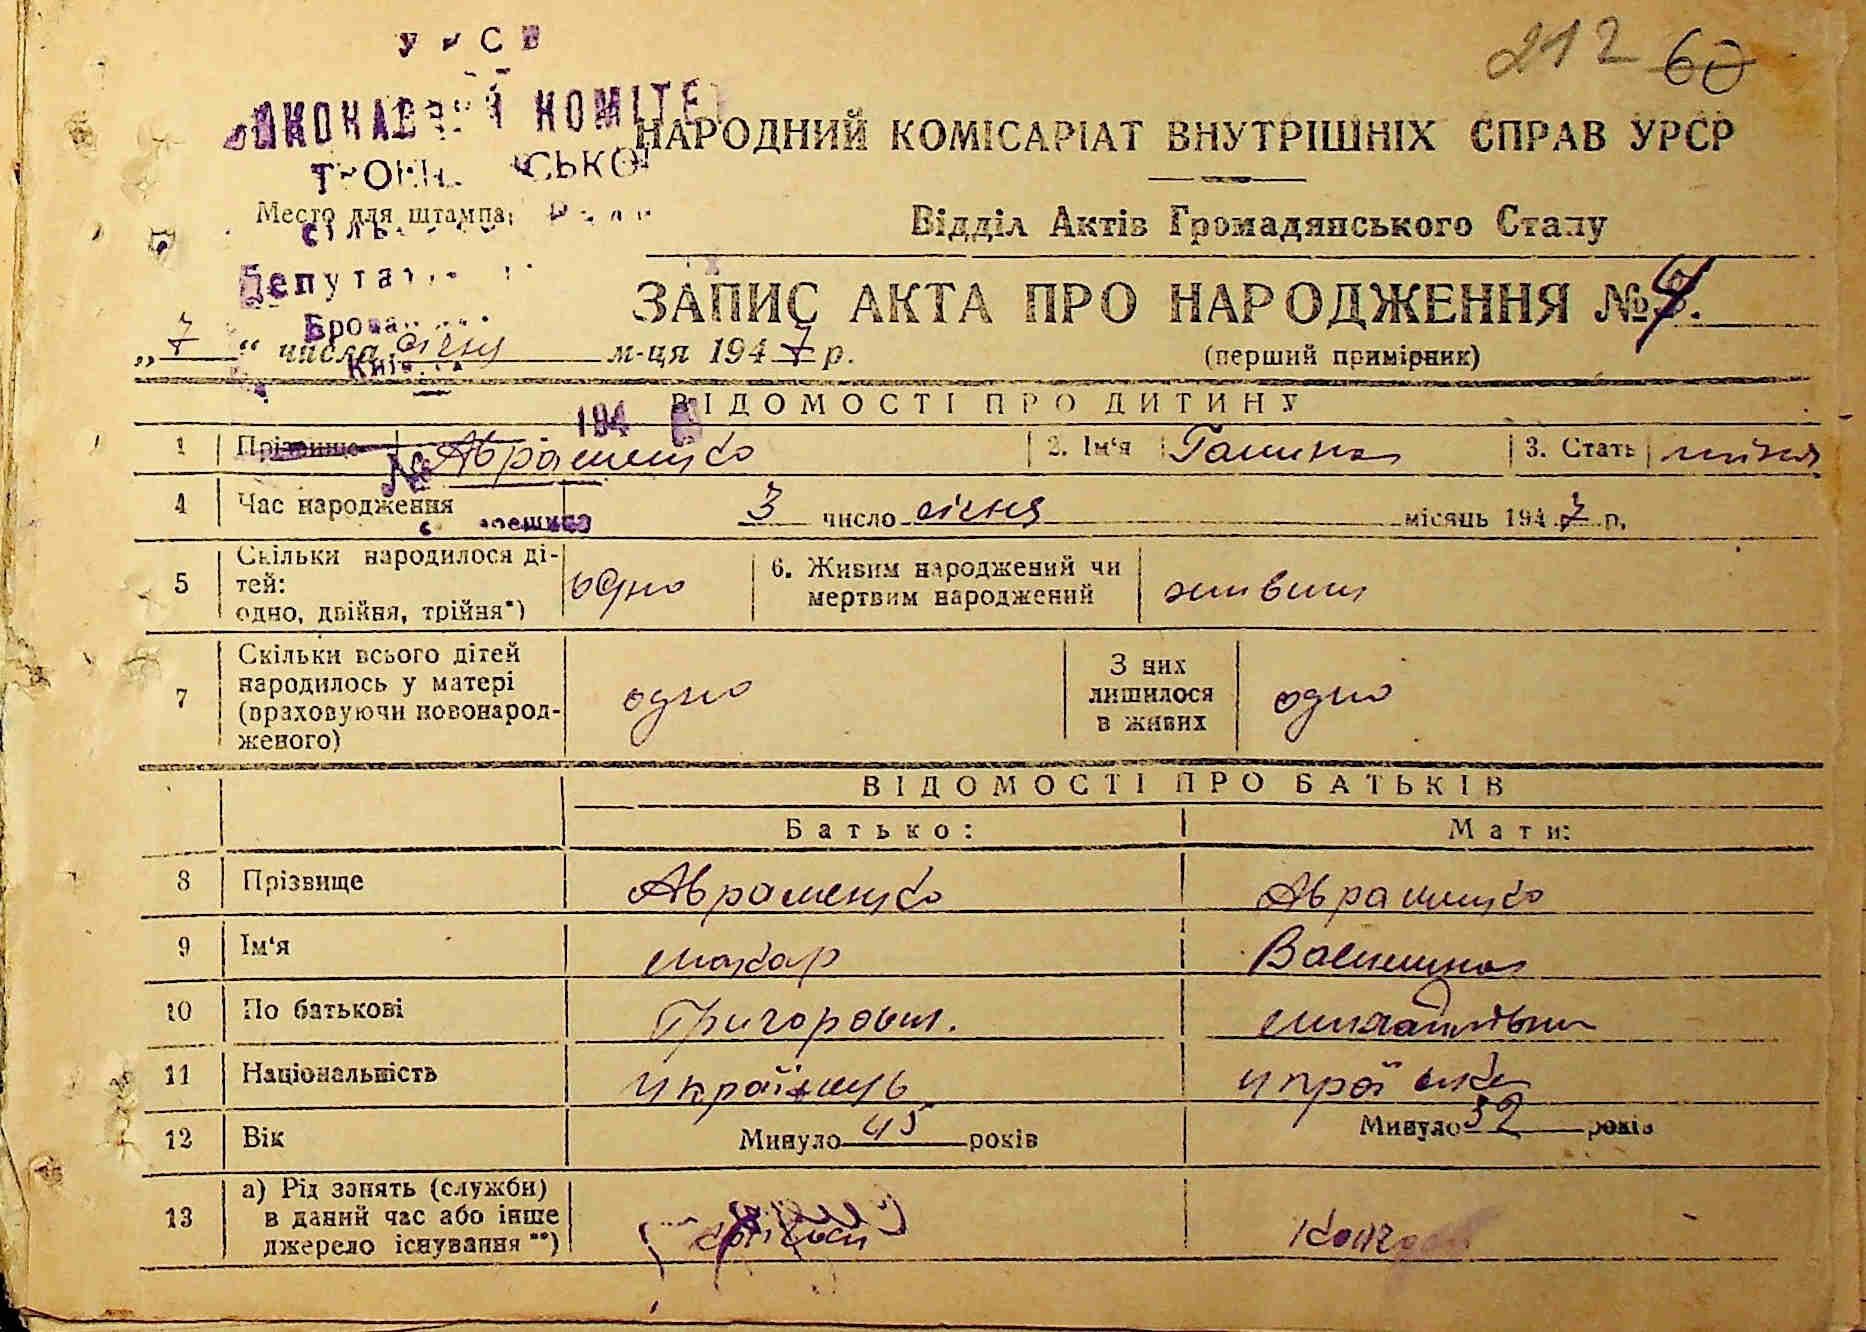 212 60
НАРОДНИЙ КОМІСАРІАТ ВНУТРІШНІХ СПРАВ УРСР
Место для штампа:
Відділ Актів Громадянського Стану
ЗАПИС АКТА ПРО НАРОДЖЕННЯ №
„7“ числа січня м-ця 1947 р.
(перший примірник)
194
ВІДОМОСТІ ПРО ДИТИНУ
1 Прізвище Авраменко 2. Ім'я Галина 3. Стать
4 Час народження 3 число січня місяць 1947 р.
5 Скільки народилося ді-
тей:
одно, двійня, трійня*) одно
6. Живим народжений чи
мертвим народжений живим
7 Скільки всього дітей
народилось у матері
(враховуючи новонарод-
женого) одно
З них
лишилося
в живих одно
ВІДОМОСТІ ПРО БАТЬКІВ
Батько: Мати:
8 Прізвище Авраменко Авраменко
9 Ім'я Макар Василина
10 По батькові Григоров. Михайлівна
11 Національність українець
12 Вік Минуло 45 років Минуло 39 років
13 а) Рід занять (служби)
в даний час або інше
джерело існування **)